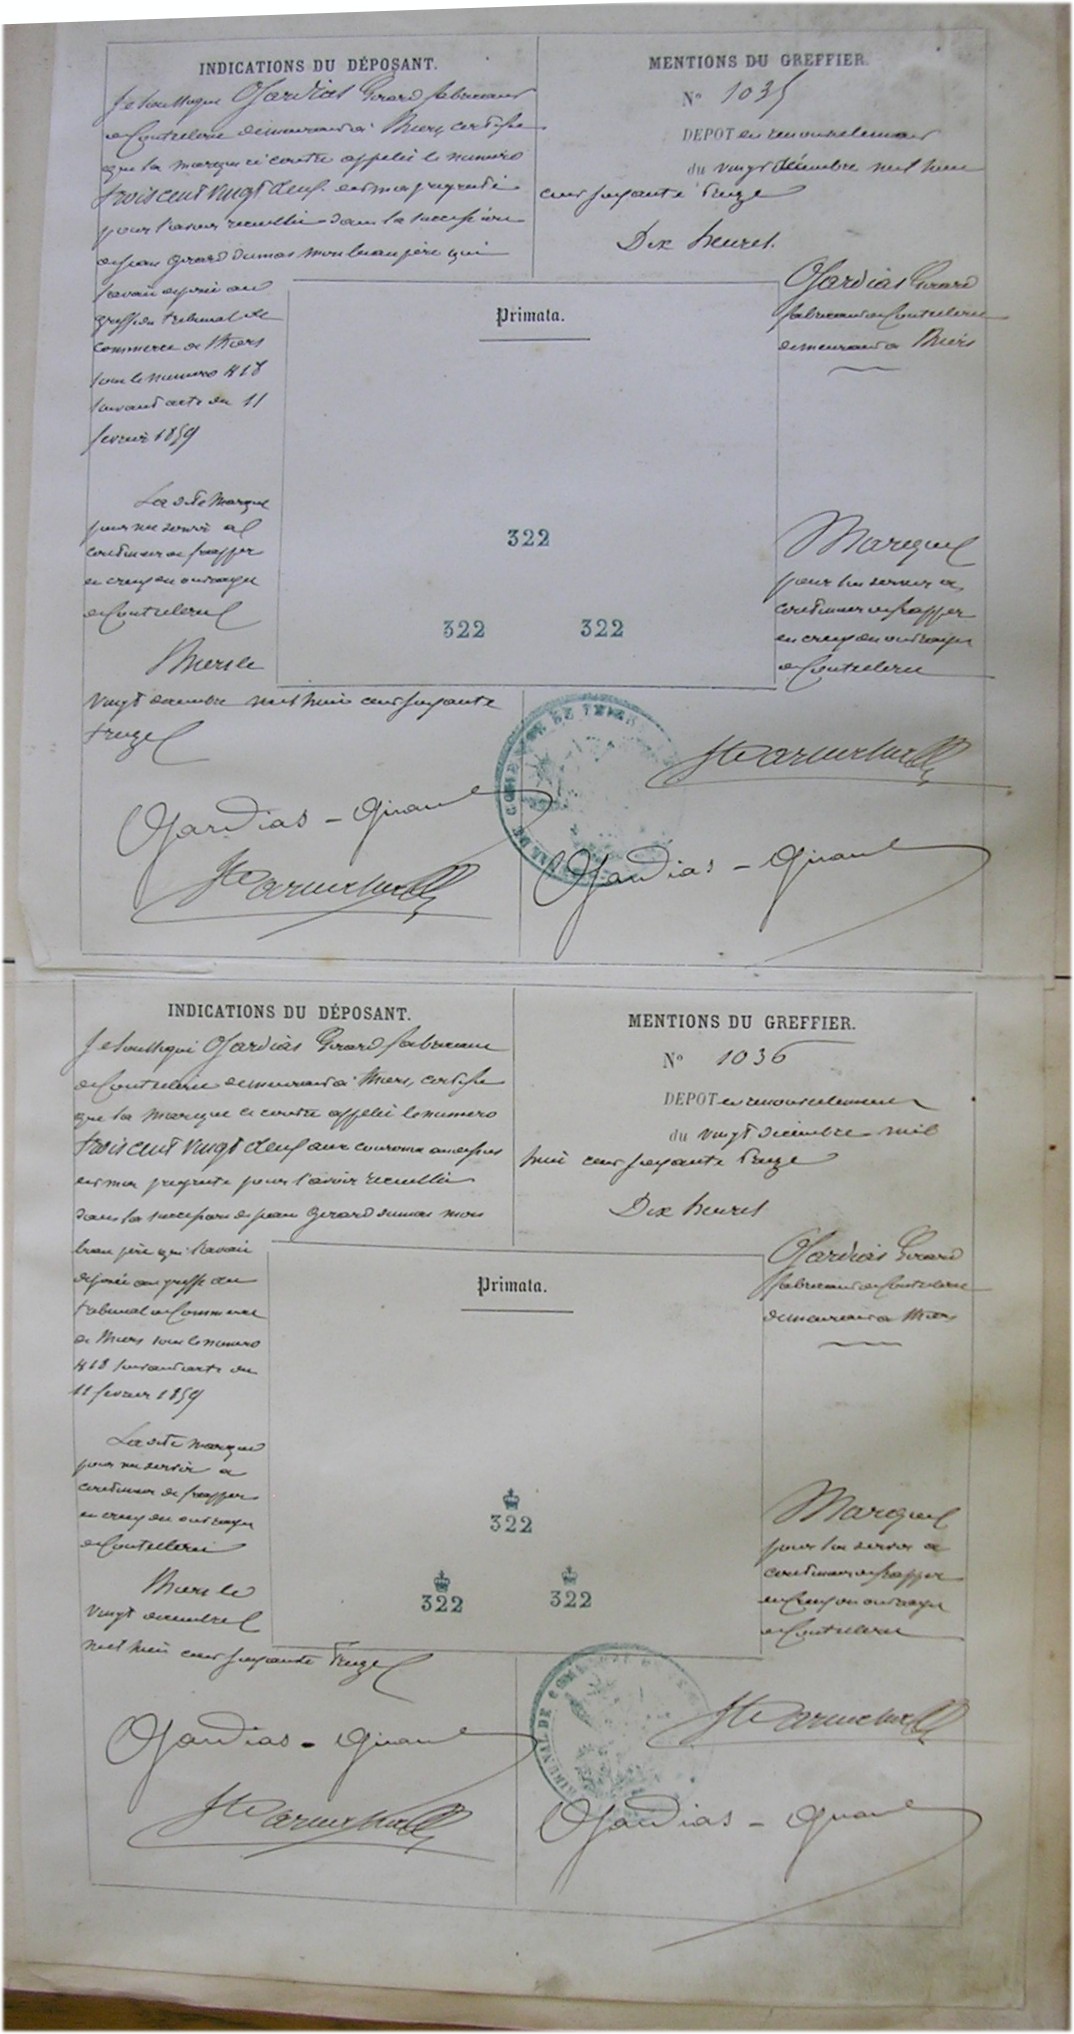 INDICATIONS DU DÉPOSANT.
Je soussigné Ojardias Girard fabricant
de Coutellerie demeurant à Thiers, certifie
que la marque ci contre appelée le numero
trois cent vingt deux est ma propriété
pour l'avoir recueillie dans la succession
de jean Girard dumas mon beau père qui
l'avait déposée au
greffe du tribunal de
commerce de Thiers
sous le numero 418
suivant acte du 11
fevrier 1859
La dite Marque
pour me servir à
continuer de frapper
en creux en ouvrages
de Coutellerie
Thiers le
vingt decembre mil huit cent soixante
treize
Ojardias - Girard
MENTIONS DU GREFFIER.
N° 1035
DEPOT en renouvellement
du vingt décembre mil huit
cent soixante treize
Dix heures.
Ojardias Girard
fabricant de Coutellerie
demeurant à Thiers
Primata.
322
322 322
Marque
pour lui servir à
continuer de frapper
en creux en ouvrages
de Coutellerie
Ojardias - Girard
INDICATIONS DU DÉPOSANT.
Je soussigné Ojardias Girard fabricant
de Coutellerie demeurant à Thiers, certifie
que la marque ci contre appelée le numero
trois cent vingt deux une couronne au dessus
est ma propriété pour l'avoir recueillie
dans la succession de jean Girard dumas mon
beau père qui l'avait
déposée au greffe du
tribunal de Commerce
de Thiers sous le numero
418 suivant acte du
11 fevrier 1859
La dite marque
pour me servir à
continuer de frapper
en creux en ouvrages
de Coutellerie
Thiers le
vingt decembre
mil huit cent soixante treize
Ojardias - Girard
MENTIONS DU GREFFIER.
N° 1036
DEPOT en renouvellement
du vingt décembre mil
huit cent soixante treize
Dix heures
Ojardias Girard
fabricant de Coutellerie
demeurant à Thiers
Primata.
322
322 322
Marque
pour lui servir à
continuer de frapper
en creux en ouvrages
de Coutellerie
Ojardias - Girard